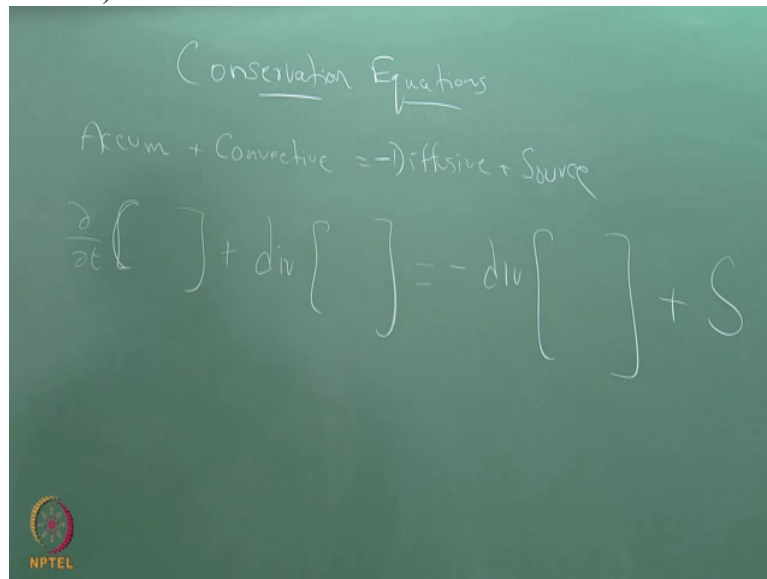 Conservation Equations
Accum + Convective = -Diffusive + Source
∂/∂t [ ] + div [ ] = - div [ ] + S
NPTEL